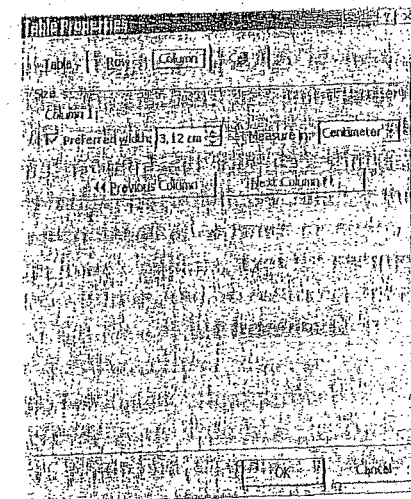 Table Properties
Table Row Column Cell
Size
Column 1:
Preferred width: 3,12 cm Measure in: Centimeter
Previous Column Next Column
OK Cancel